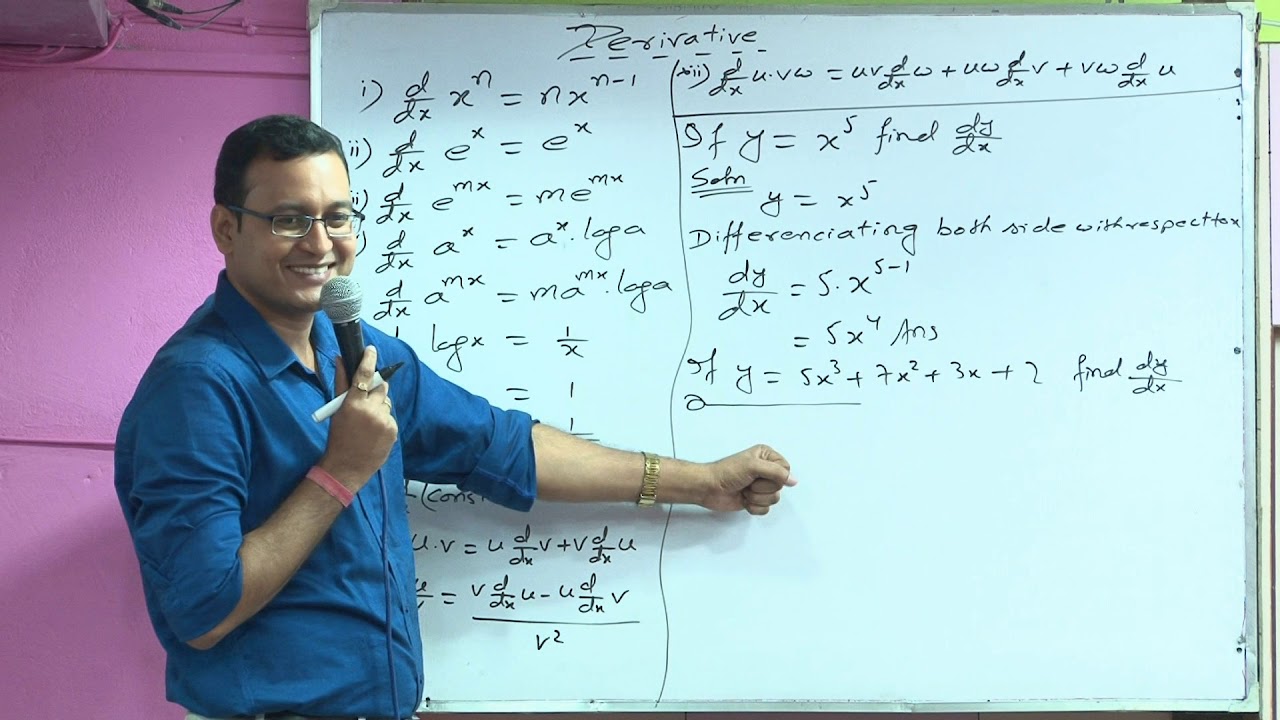 Derivative
i) d/dx xⁿ = nxⁿ⁻¹
ii) d/dx eˣ = eˣ
d/dx eᵐˣ = meᵐˣ
d/dx aˣ = aˣ.loga
d/dx aᵐˣ = maᵐˣ.loga
logx = 1/x
= 1
1
(cons
u.v = u d/dx v + v d/dx u
= (v d/dx u - u d/dx v)/v²
d/dx u.vw = uv d/dx w + uw d/dx v + vw d/dx u
If y = x⁵ find dy/dx
Soln
y = x⁵
Differenciating both side with respect to x
dy/dx = 5.x⁵⁻¹
= 5x⁴ Ans
If y = 5x³ + 7x² + 3x + 2 find dy/dx